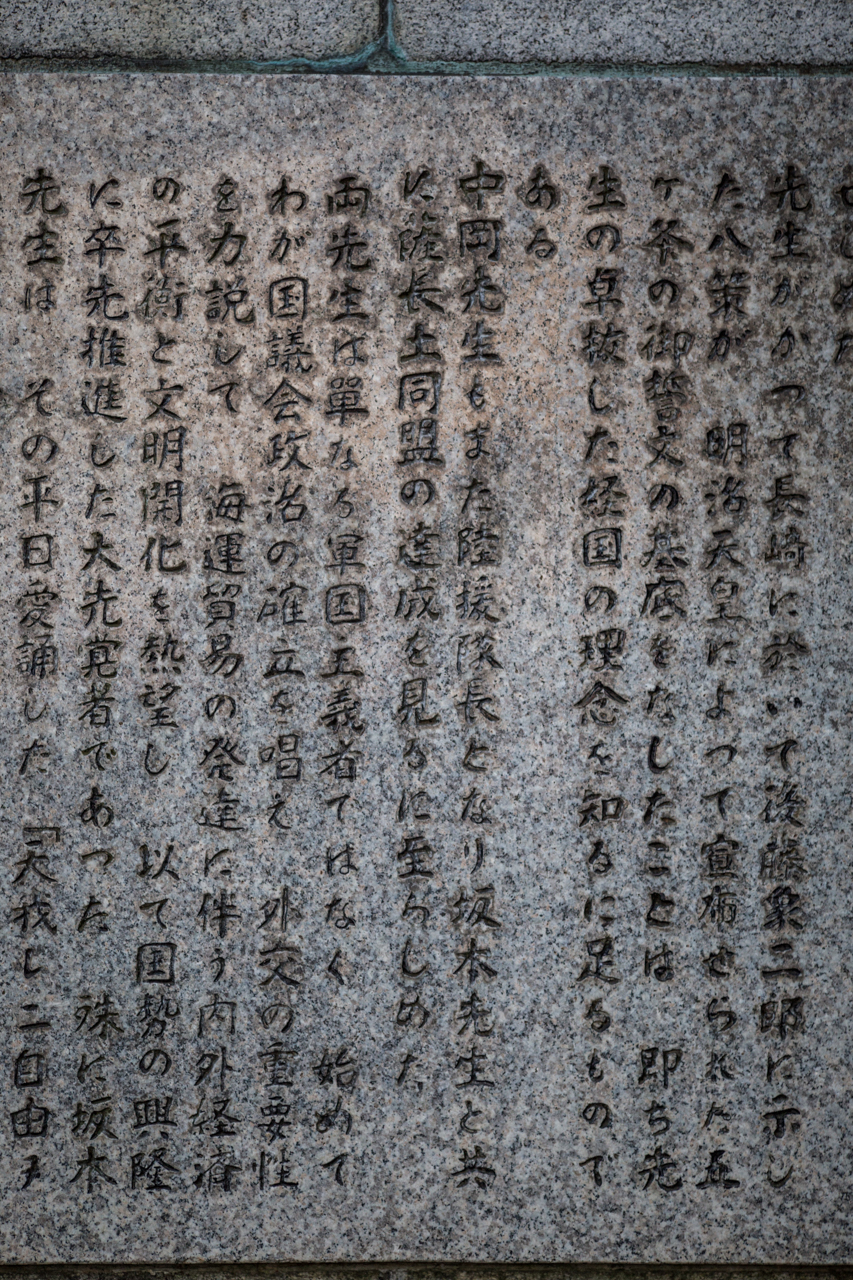 先生がかつて長崎に於いて後藤象二郎に示し
た八策が　明治天皇によつて宣布せられた五
ケ条の御誓文の基底をなしたことは　即ち先
生の卓拔した経国の理念を知るに足るもので
ある
中岡先生もまた陸援隊長となり坂本先生と共
に薩長土同盟の達成を見るに至らしめた
両先生は單なる軍国主義者ではなく　始めて
わが国議会政治の確立を唱え　外交の重要性
を力説して　海運貿易の発達に伴う内外経済
の平衡と文明開化を熱望し　以て国勢の興隆
に卒先推進した大先覚者であつた　殊に坂本
先生は　その平日愛誦した『天我レニ自由ヲ